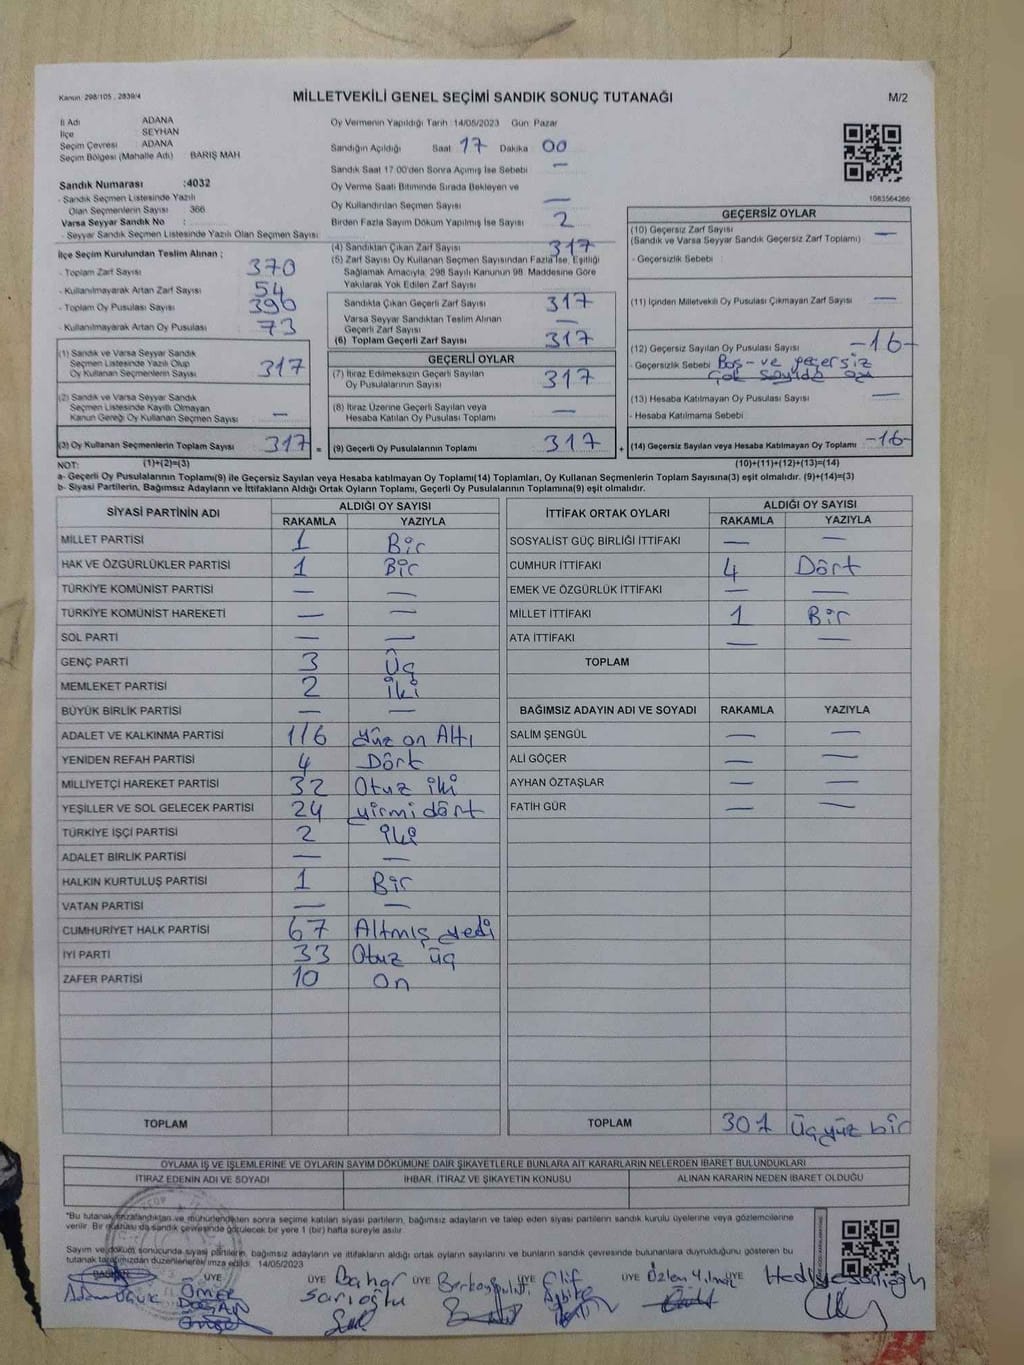 Kanun: 298/105 , 2839/4
MİLLETVEKİLİ GENEL SEÇİMİ SANDIK SONUÇ TUTANAĞI
M/2
İl Adı ADANA
İlçe SEYHAN
Seçim Çevresi ADANA
Seçim Bölgesi (Mahalle Adı) BARIŞ MAH
Sandık Numarası :4032
- Sandık Seçmen Listesinde Yazılı
Olan Seçmenlerin Sayısı : 366
Varsa Seyyar Sandık No :
- Seyyar Sandık Seçmen Listesinde Yazılı Olan Seçmen Sayısı:
Oy Vermenin Yapıldığı Tarih :14/05/2023 Gün: Pazar
Sandığın Açıldığı Saat 17 Dakika 00
Sandık Saat 17:00'den Sonra Açılmış İse Sebebi —
Oy Verme Saati Bitiminde Sırada Bekleyen ve
Oy Kullandırılan Seçmen Sayısı —
Birden Fazla Sayım Döküm Yapılmış İse Sayısı 2
1083564266
İlçe Seçim Kurulundan Teslim Alınan ;
- Toplam Zarf Sayısı 370
- Kullanılmayarak Artan Zarf Sayısı 54
- Toplam Oy Pusulası Sayısı 390
- Kullanılmayarak Artan Oy Pusulası 73
(1) Sandık ve Varsa Seyyar Sandık
Seçmen Listesinde Yazılı Olup
Oy Kullanan Seçmenlerin Sayısı 317
(2) Sandık ve Varsa Seyyar Sandık
Seçmen Listesinde Kayıtlı Olmayan
Kanun Gereği Oy Kullanan Seçmen Sayısı —
(3) Oy Kullanan Seçmenlerin Toplam Sayısı 317 =
(4) Sandıktan Çıkan Zarf Sayısı 317
(5) Zarf Sayısı Oy Kullanan Seçmen Sayısından Fazla İse, Eşitliği
Sağlamak Amacıyla, 298 Sayılı Kanunun 98. Maddesine Göre
Yakılarak Yok Edilen Zarf Sayısı
Sandıkta Çıkan Geçerli Zarf Sayısı 317
Varsa Seyyar Sandıktan Teslim Alınan
Geçerli Zarf Sayısı —
(6) Toplam Geçerli Zarf Sayısı 317
GEÇERLİ OYLAR
(7) İtiraz Edilmeksizin Geçerli Sayılan
Oy Pusulalarının Sayısı 317
(8) İtiraz Üzerine Geçerli Sayılan veya
Hesaba Katılan Oy Pusulaları Toplamı —
(9) Geçerli Oy Pusulalarının Toplamı 317 +
GEÇERSİZ OYLAR
(10) Geçersiz Zarf Sayısı
(Sandık ve Varsa Seyyar Sandık Geçersiz Zarf Toplamı) —
- Geçersizlik Sebebi :
(11) İçinden Milletvekili Oy Pusulası Çıkmayan Zarf Sayısı —
(12) Geçersiz Sayılan Oy Pusulası Sayısı -16-
- Geçersizlik Sebebi Boş-ve geçersiz
çok sayıda
(13) Hesaba Katılmayan Oy Pusulası Sayısı —
- Hesaba Katılmama Sebebi
(14) Geçersiz Sayılan veya Hesaba Katılmayan Oy Toplamı -16-
NOT: (1)+(2)=(3) (10)+(11)+(12)+(13)=(14)
a- Geçerli Oy Pusulalarının Toplamı(9) ile Geçersiz Sayılan veya Hesaba katılmayan Oy Toplamı(14) Toplamları, Oy Kullanan Seçmenlerin Toplam Sayısına(3) eşit olmalıdır. (9)+(14)=(3)
b- Siyasi Partilerin, Bağımsız Adayların ve İttifakların Aldığı Ortak Oyların Toplamı, Geçerli Oy Pusulalarının Toplamına(9) eşit olmalıdır.
SİYASİ PARTİNİN ADI ALDIĞI OY SAYISI
RAKAMLA YAZIYLA
MİLLET PARTİSİ 1 Bir
HAK VE ÖZGÜRLÜKLER PARTİSİ 1 Bir
TÜRKİYE KOMÜNİST PARTİSİ — —
TÜRKİYE KOMÜNİST HAREKETİ — —
SOL PARTİ — —
GENÇ PARTİ 3 Üç
MEMLEKET PARTİSİ 2 iki
BÜYÜK BİRLİK PARTİSİ — —
ADALET VE KALKINMA PARTİSİ 116 yüz on Altı
YENİDEN REFAH PARTİSİ 4 Dört
MİLLİYETÇİ HAREKET PARTİSİ 32 Otuz iki
YEŞİLLER VE SOL GELECEK PARTİSİ 24 yirmi dört
TÜRKİYE İŞÇİ PARTİSİ 2 iki
ADALET BİRLİK PARTİSİ — —
HALKIN KURTULUŞ PARTİSİ 1 Bir
VATAN PARTİSİ — —
CUMHURİYET HALK PARTİSİ 67 Altmış yedi
İYİ PARTİ 33 Otuz üç
ZAFER PARTİSİ 10 on
TOPLAM
İTTİFAK ORTAK OYLARI ALDIĞI OY SAYISI
RAKAMLA YAZIYLA
SOSYALİST GÜÇ BİRLİĞİ İTTİFAKI — —
CUMHUR İTTİFAKI 4 Dört
EMEK VE ÖZGÜRLÜK İTTİFAKI — —
MİLLET İTTİFAKI 1 Bir
ATA İTTİFAKI — —
TOPLAM
BAĞIMSIZ ADAYIN ADI VE SOYADI RAKAMLA YAZIYLA
SALİM ŞENGÜL — —
ALİ GÖÇER — —
AYHAN ÖZTAŞLAR — —
FATİH GÜR — —
TOPLAM 301 Üçyüz bir
OYLAMA İŞ VE İŞLEMLERİNE VE OYLARIN SAYIM DÖKÜMÜNE DAİR ŞİKAYETLERLE BUNLARA AİT KARARLARIN NELERDEN İBARET BULUNDUKLARI
İTİRAZ EDENİN ADI VE SOYADI İHBAR, İTİRAZ VE ŞİKAYETİN KONUSU ALINAN KARARIN NEDEN İBARET OLDUĞU
*Bu tutanak imzalandıktan ve mühürlendikten sonra seçime katılan siyasi partilerin, bağımsız adayların ve talep eden siyasi partilerin sandık kurulu üyelerine veya gözlemcilerine
verilir. Bir nüshası da sandık çevresinde görülecek bir yere 1 (bir) hafta süreyle asılır.
Sayım ve döküm sonucunda siyasi partilerin, bağımsız adayların ve ittifakların aldığı ortak oyların sayılarını ve bunların sandık çevresinde bulunanlara duyrulduğunu gösteren bu
tutanak tarafımızdan düzenlenerek imza edildi. 14/05/2023
BAŞKAN ÜYE ÜYE ÜYE ÜYE ÜYE ÜYE
Ömer DOĞAN
Bahar Sarıoğlu
Elif
Özlem Yılmaz